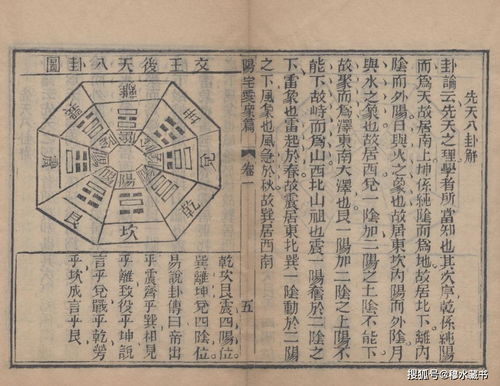 先天八卦解
卦論云先天之理學者所當知也其次序乾係純陽
而爲天故居南上坤係純陰而爲地故居北下離內
陰而外陽日與火之象也故居東坎內陽而外陰月
與水之象也故居西兌一陰加二陽之上不能下
故聚而爲澤東南大澤也艮一陽加二陰之上陽不
能下故峙而爲山西北山祖也震一陽奮於二陰
下雷象也雷起於春故震居東北巽一陰動於二陽
之下風象也風急於秋故巽居西南
陽宅愛衆篇
卷一
五
文王後天八卦圖
離
坤
兌
乾
坎
艮
震
巽
陰
陰
陰
陰
陽
陽
陽
陽
乾坎艮震四陽位
巽離坤兌四陰位
易說卦傳曰帝出
乎震齊乎巽相見
乎離致役乎坤說
言乎兌戰乎乾勞
乎坎成言乎艮
搜狐号@穆水藏书